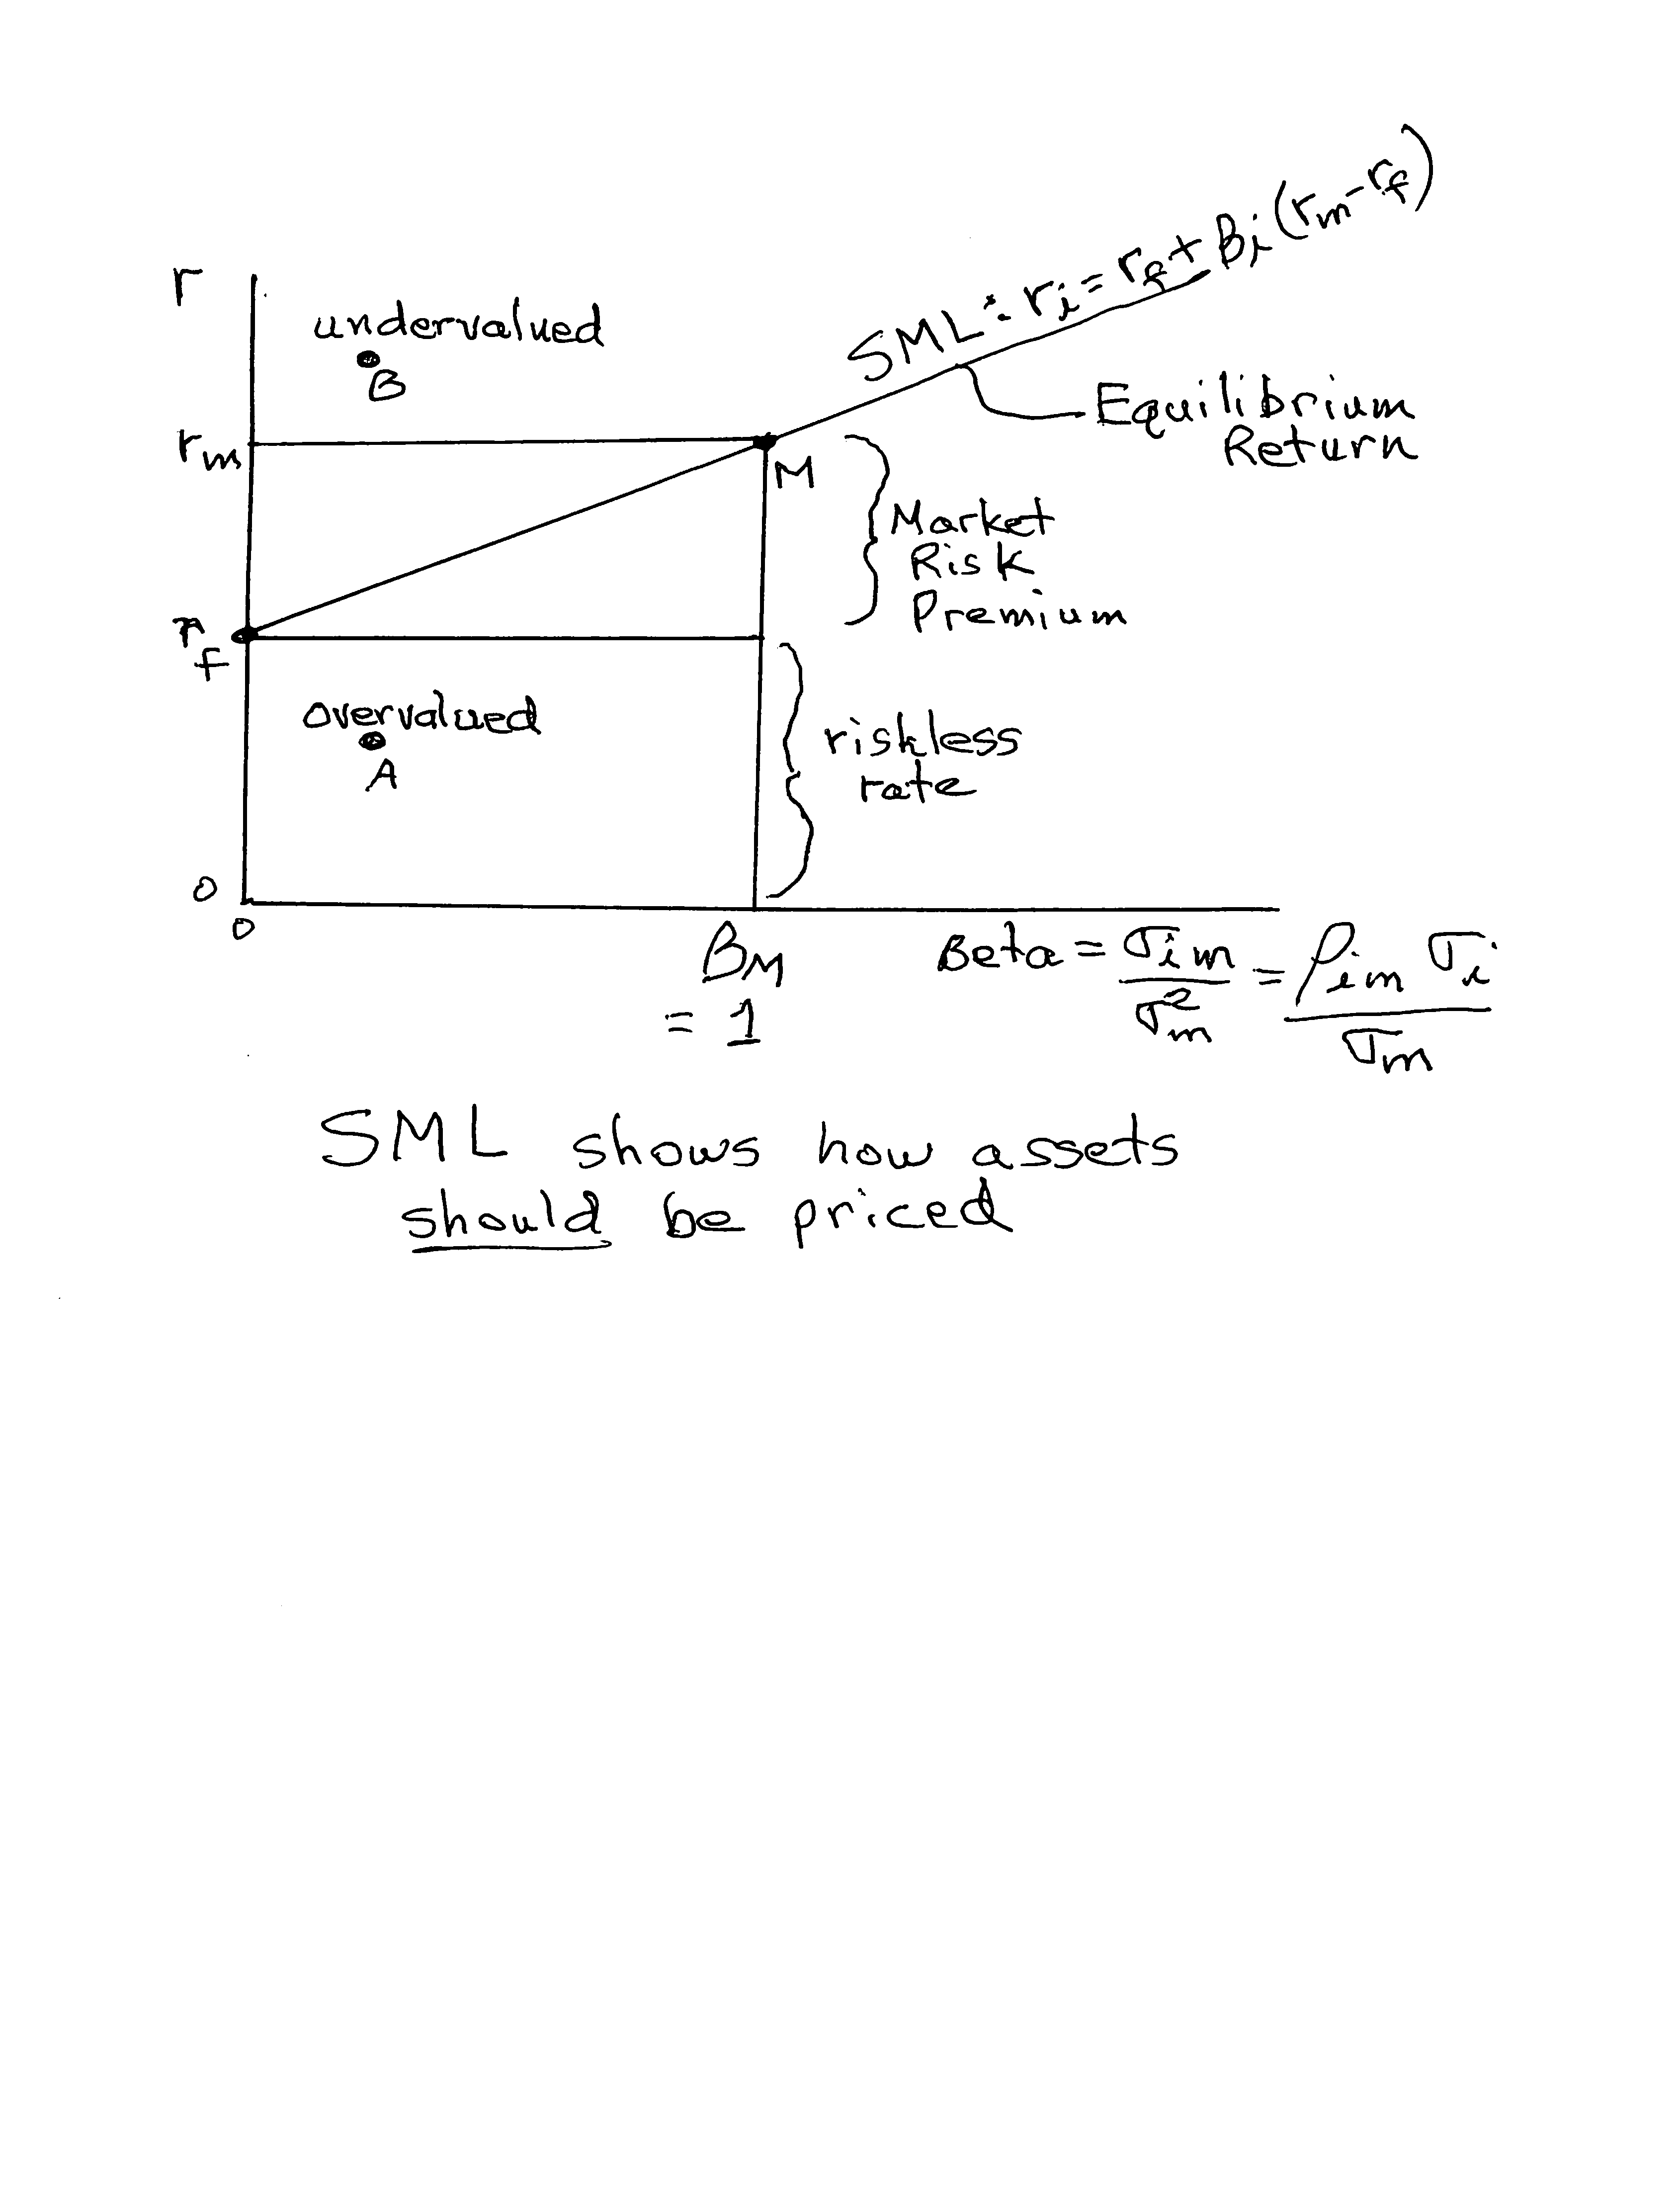 SML: rᵢ = r_f + Bᵢ(r_m - r_f)
r
undervalued
B
Equilibrium
Return
r_m
M
Market
Risk
Premium
r_f
overvalued
A
riskless
rate
0
0
B_M
= 1
Beta = σ_im / σ²_m = ρ_im σ_i / σ_m
SML shows how assets
should be priced